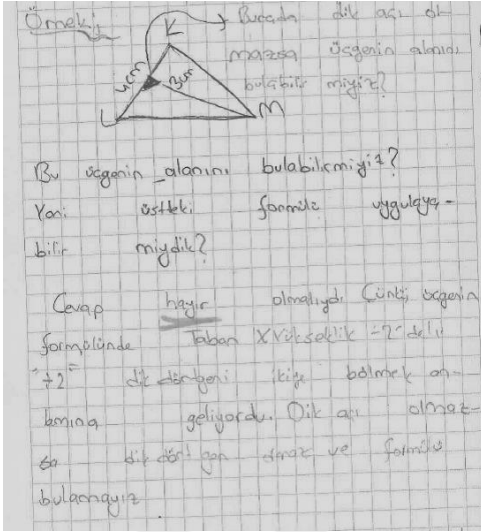 Örnek:
K
Burada dik açı ol-
mazsa üçgenin alanını
bulabilir miyiz?
4cm
3cm
L
M
Bu üçgenin alanını bulabilirmiyiz?
Yani üstteki formülü uygulaya-
bilir miydik?
Cevap hayır olmalıydı. Çünkü üçgenin
formülünde Taban X Yükseklik ÷2'deki
"÷2" dikdörtgeni ikiye bölmek an-
lamına geliyordu. Dik açı olmaz-
sa dikdörtgen olmaz ve formülü
bulamayız